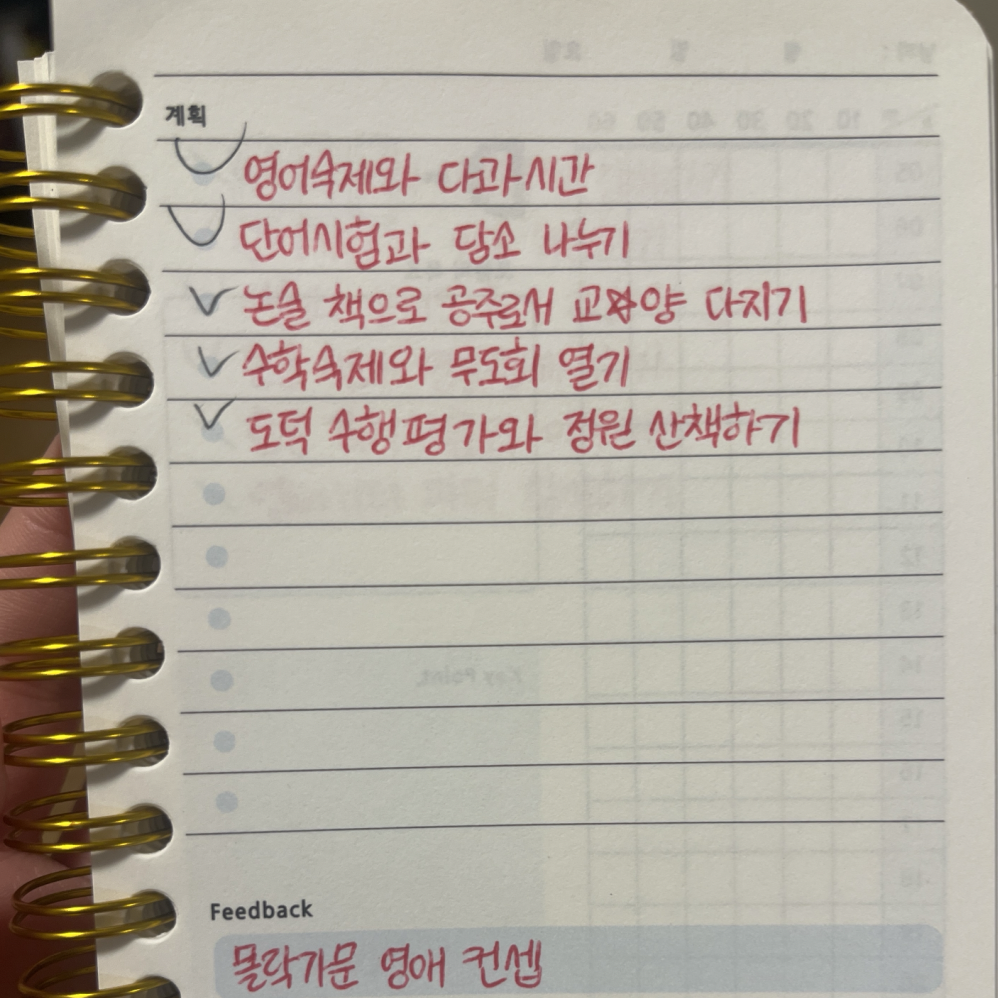 계획
영어숙제와 다과시간
단어시험과 담소 나누기
논술 책으로 공주로서 교양 다지기
수학숙제와 무도회 열기
도덕 수행평가와 정원 산책하기
Feedback
몰락가문 영애 컨셉